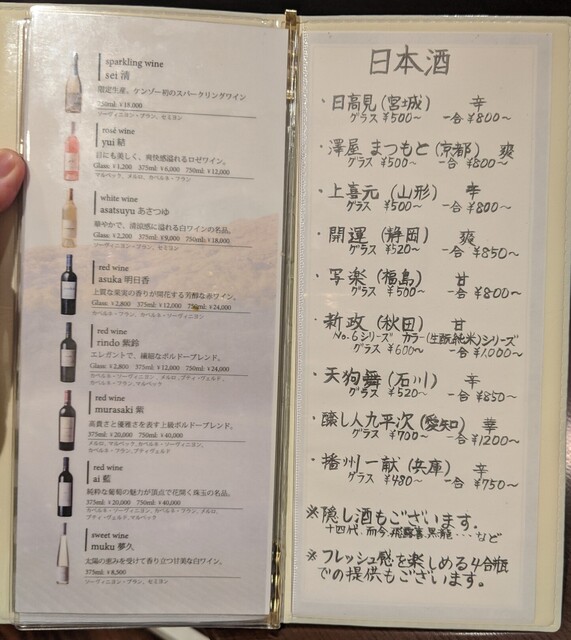 sparkling wine
sei 清
限定生産、ケンゾー初のスパークリングワイン
750ml: ¥18,000
ソーヴィニヨン・ブラン、セミヨン
rosé wine
yui 結
目にも美しく、爽快感溢れるロゼワイン。
Glass: ¥1,200 375ml: ¥6,000 750ml: ¥12,000
マルベック、メルロ、カベルネ・フラン
white wine
asatsuyu あさつゆ
華やかで、清涼感に溢れる白ワインの名品。
Glass: ¥2,200 375ml: ¥9,000 750ml: ¥18,000
ソーヴィニヨン・ブラン
red wine
asuka 明日香
上質な果実の香りが開花する芳醇な赤ワイン。
Glass: ¥2,800 375ml: ¥12,000 750ml: ¥24,000
カベルネ・フラン、カベルネ・ソーヴィニヨン
red wine
rindo 紫鈴
エレガントで、繊細なボルドーブレンド。
Glass: ¥2,800 375ml: ¥12,000 750ml: ¥24,000
カベルネ・ソーヴィニヨン、メルロ、プティ・ヴェルド、
カベルネ・フラン、マルベック
red wine
murasaki 紫
高貴さと優雅さを表す上級ボルドーブレンド。
375ml: ¥20,000 750ml: ¥40,000
メルロ、マルベック、カベルネ・ソーヴィニヨン、
カベルネ・フラン、プティヴェルド
red wine
ai 藍
純粋な葡萄の魅力が頂点で花開く珠玉の名品。
375ml: ¥20,000 750ml: ¥40,000
カベルネ・ソーヴィニヨン、カベルネ・フラン、メルロ、
プティ・ヴェルド、マルベック
sweet wine
muku 夢久
太陽の恵みを受けて香り立つ甘美な白ワイン。
375ml: ¥8,500
ソーヴィニヨン・ブラン、セミヨン
日本酒
・日高見(宮城) 辛
グラス ¥500～ 一合 ¥800～
・澤屋 まつもと(京都) 爽
グラス ¥500～ 一合 ¥800～
・上喜元(山形) 辛
グラス ¥500～ 一合 ¥800～
・開運(静岡) 爽
グラス ¥520～ 一合 ¥850～
・写楽(福島) 甘
グラス ¥500～ 一合 ¥800～
・新政(秋田) 甘
No.6シリーズ カラー(生酛純米)シリーズ
グラス ¥600～ 一合 ¥1,000～
・天狗舞(石川) 辛
グラス ¥520～ 一合 ¥850～
・醸し人九平次(愛知) 華
グラス ¥700～ 一合 ¥1200～
・播州一献(兵庫) 辛
グラス ¥480～ 一合 ¥750～
※隠し酒もございます。
十四代、而今、飛露喜、黒龍‥‥など
※フレッシュ感を楽しめる4合瓶
での提供もございます。